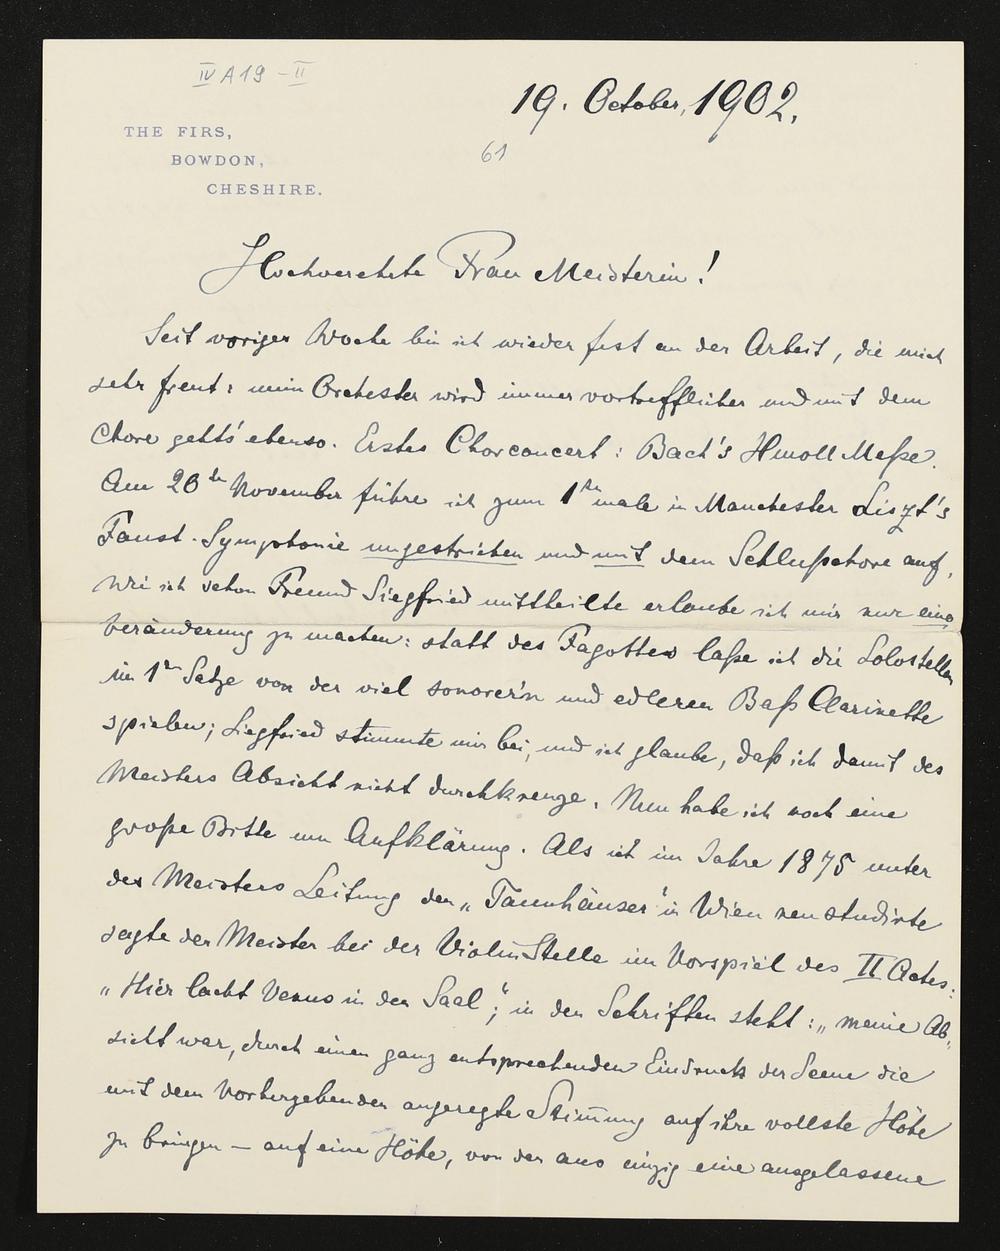 IV A 19 - II
19. October, 1902.
THE FIRS,
BOWDON,
CHESHIRE.
61
Hochverehrte Frau Meisterin!
Seit voriger Woche bin ich wieder fest an der Arbeit, die mich
sehr freut: mein Orchester wird immer vortrefflicher und mit dem
Chore gehts' ebenso. Erstes Chorconcert: Bach's Hmoll Meße.
Am 20ten November führe ich zum 1ten male in Manchester Liszt's
Faust-Symphonie ungestrichen und mit dem Schlußchore auf,
wie ich schon Freund Siegfried mittheilte erlaube ich mir nur eine
Veränderung zu machen: statt des Fagottes laße ich die Solostellen
im 1ten Satze von der viel sonorer'n und edleren Baß Clarinette
spielen; Siegfried stimmte mir bei, und ich glaube, daß ich damit des
Meisters Absicht nicht durchkreuze. Nun habe ich noch eine
große Bitte um Aufklärung. Als ich im Jahre 1875 unter
des Meisters Leitung den „Tannhäuser" in Wien neustudirte
sagte der Meister bei der ViolinStelle im Vorspiel des II Actes:
„Hier lacht Venus in den Saal"; in den Schriften steht: „meine Ab-
sicht war, durch einen ganz entsprechenden Eindruck der Scene die
mit dem Vorhergehenden angeregte Stim̅ung auf ihre vollste Höhe
zu bringen — auf eine Höhe, von der aus einzig eine ausgelassene